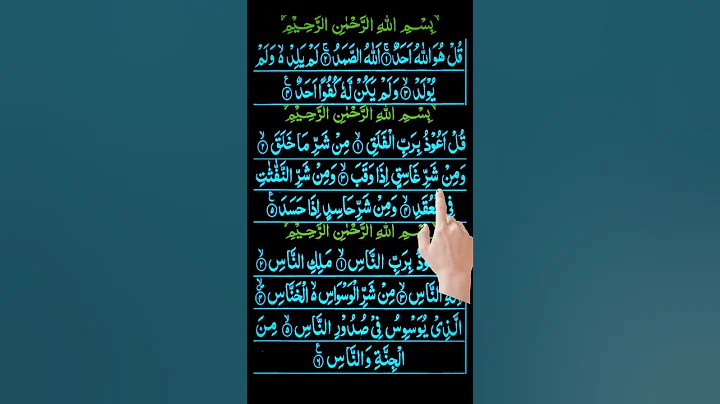 بِسْمِ اللهِ الرَّحْمٰنِ الرَّحِيْمِ
قُلْ هُوَ اللهُ اَحَدٌ ۚ﴿۱﴾ اَللهُ الصَّمَدُ ۚ﴿۲﴾ لَمْ يَلِدْ ۙ وَلَمْ
يُوْلَدْ ۙ﴿۳﴾ وَلَمْ يَكُنْ لَّهٗ كُفُوًا اَحَدٌ ﴿۴﴾
بِسْمِ اللهِ الرَّحْمٰنِ الرَّحِيْمِ
قُلْ اَعُوْذُ بِرَبِّ الْفَلَقِ ۙ﴿۱﴾ مِنْ شَرِّ مَا خَلَقَ ۙ﴿۲﴾
وَمِنْ شَرِّ غَاسِقٍ اِذَا وَقَبَ ۙ﴿۳﴾ وَمِنْ شَرِّ النَّفّٰثٰتِ
فِي الْعُقَدِ ۙ﴿۴﴾ وَمِنْ شَرِّ حَاسِدٍ اِذَا حَسَدَ ﴿۵﴾
اللهِ الرَّحْمٰنِ الرَّحِيْمِ
بِرَبِّ النَّاسِ ۙ﴿۱﴾ مَلِكِ النَّاسِ ۙ﴿۲﴾
النَّاسِ ۙ﴿۳﴾ مِنْ شَرِّ الْوَسْوَاسِ ۙ الْخَنَّاسِ ﴿۴﴾
الَّذِيْ يُوَسْوِسُ فِيْ صُدُوْرِ النَّاسِ ۙ﴿۵﴾ مِنَ
الْجِنَّةِ وَالنَّاسِ ﴿۶﴾